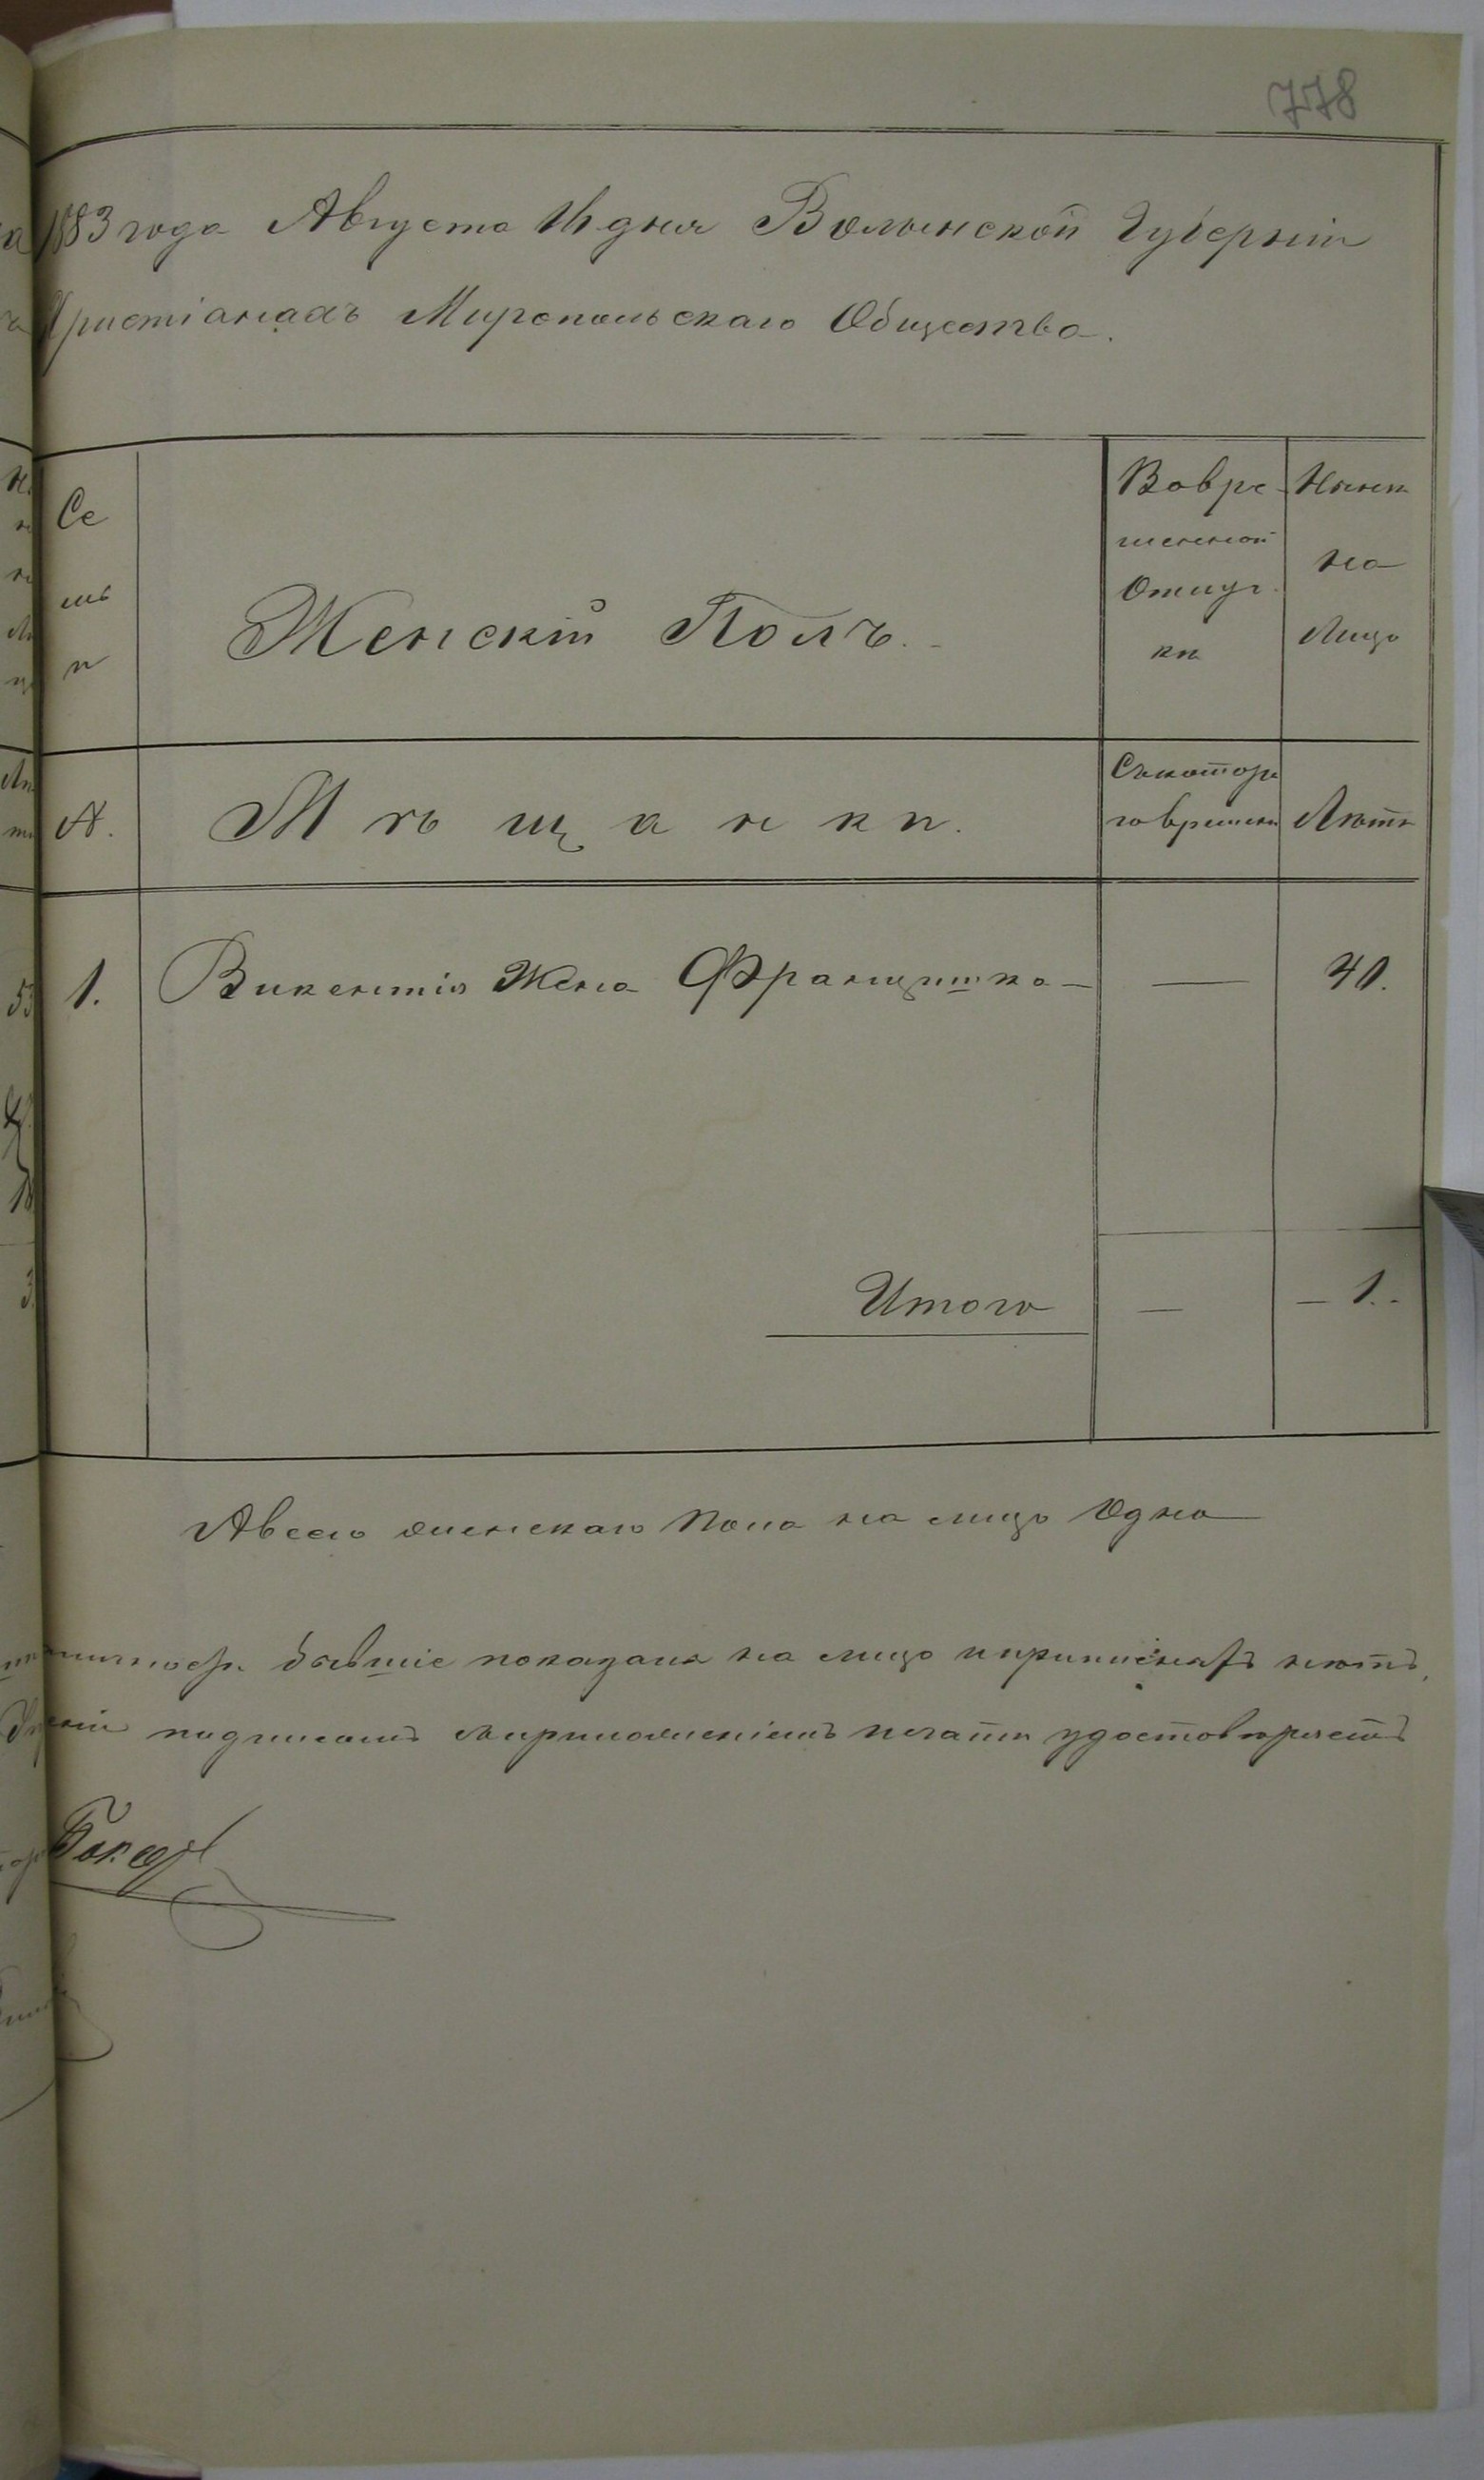 778
1883 года Августа 16 дня Волынской Губерніи
Христіанахъ Миропольскаго Общества.
Се
мь
и
Женскій Полъ.
Вовре-
менной
Отлуч
ки
Нынѣ
на
Лицо
№.
Мѣщанки.
Съкотора
го времени
Лѣтъ
1. Викентія Жена Францишка — — 41.
Итого — — 1. -
А всего женскаго пола на лицо Одна
бывшіе показаны на лицо и прописныхъ нѣтъ,
подписомъ съ приложеніемъ печати удостовѣряетъ